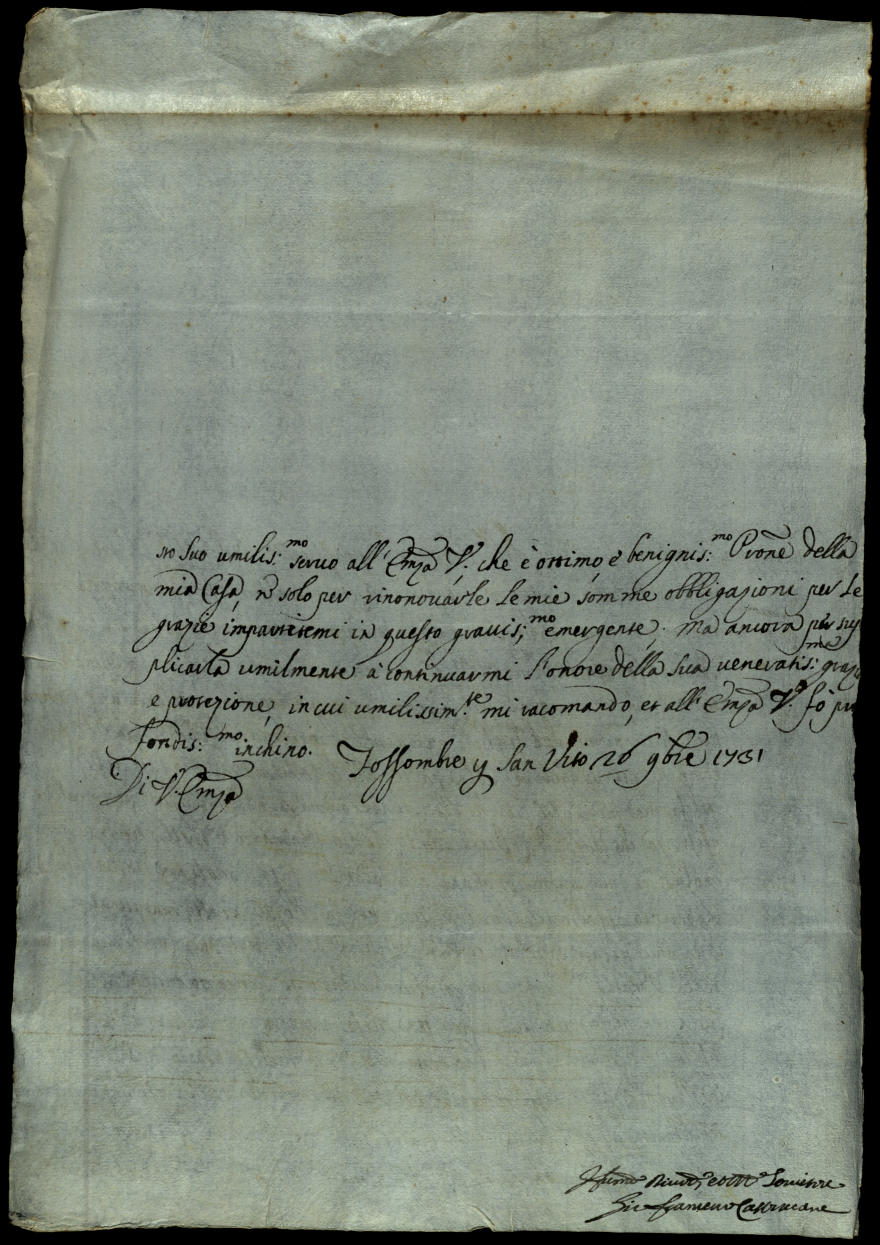 sto suo umilis:mo servo all'Emza V. che è ottimo e benignis:mo Prone della
mia Casa, n solo per rinonovarle le mie somme obbligazioni per le
grazie impartitemi in questo gravis:mo emergente. Ma ancora per sup
plicarla umilmente à continuarmi l'onore della sua veneratis:me grazi
e protezione, in cui umilissim.te mi racomando, et all'Emza V.a fò pro
fondis:mo inchino. Fossombre p San Vito 26 9bre 1731
Di V. Emza
Humo Divmo et Obbmo Servitore
Gio Francesco Castracane